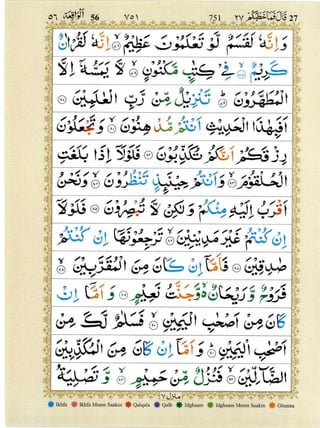 ٥٦ الواقعة 56 ٧٥١ 751 قال فما خطبكم ٢٧ 27
وَاِنَّهٗ لَقَسَمٌ لَّوْ تَعْلَمُوْنَ عَظِيْمٌ ﴿٧٦﴾ اِنَّهٗ لَقُرْاٰنٌ
كَرِيْمٌ ﴿٧٧﴾ فِيْ كِتٰبٍ مَّكْنُوْنٍ ﴿٧٨﴾ لَّا يَمَسُّهٗٓ اِلَّا
الْمُطَهَّرُوْنَ ﴿٧٩﴾ تَنْزِيْلٌ مِّنْ رَّبِّ الْعٰلَمِيْنَ ﴿٨٠﴾
اَفَبِهٰذَا الْحَدِيْثِ اَنْتُمْ مُّدْهِنُوْنَ ﴿٨١﴾ وَتَجْعَلُوْنَ
رِزْقَكُمْ اَنَّكُمْ تُكَذِّبُوْنَ ﴿٨٢﴾ فَلَوْلَآ اِذَا بَلَغَتِ
الْحُلْقُوْمَ ﴿٨٣﴾ وَاَنْتُمْ حِيْنَئِذٍ تَنْظُرُوْنَ ﴿٨٤﴾ وَنَحْنُ
اَقْرَبُ اِلَيْهِ مِنْكُمْ وَلٰكِنْ لَّا تُبْصِرُوْنَ ﴿٨٥﴾ فَلَوْلَآ
اِنْ كُنْتُمْ غَيْرَ مَدِيْنِيْنَ ﴿٨٦﴾ تَرْجِعُوْنَهَآ اِنْ كُنْتُمْ
صٰدِقِيْنَ ﴿٨٧﴾ فَاَمَّآ اِنْ كَانَ مِنَ الْمُقَرَّبِيْنَ ﴿٨٨﴾
فَرَوْحٌ وَّرَيْحَانٌ ۙ وَّجَنَّتُ نَعِيْمٍ ﴿٨٩﴾ وَاَمَّآ اِنْ
كَانَ مِنْ اَصْحٰبِ الْيَمِيْنِ ﴿٩٠﴾ فَسَلٰمٌ لَّكَ مِنْ
اَصْحٰبِ الْيَمِيْنِ ﴿٩١﴾ وَاَمَّآ اِنْ كَانَ مِنَ الْمُكَذِّبِيْنَ
الضَّآلِّيْنَ ﴿٩٢﴾ فَنُزُلٌ مِّنْ حَمِيْمٍ ﴿٩٣﴾ وَّتَصْلِيَةُ
منزل ٧
Ikhfa Ikhfa Meem Saakin Qalqala Qalb Idghaam Idghaam Meem Saakin Ghunna